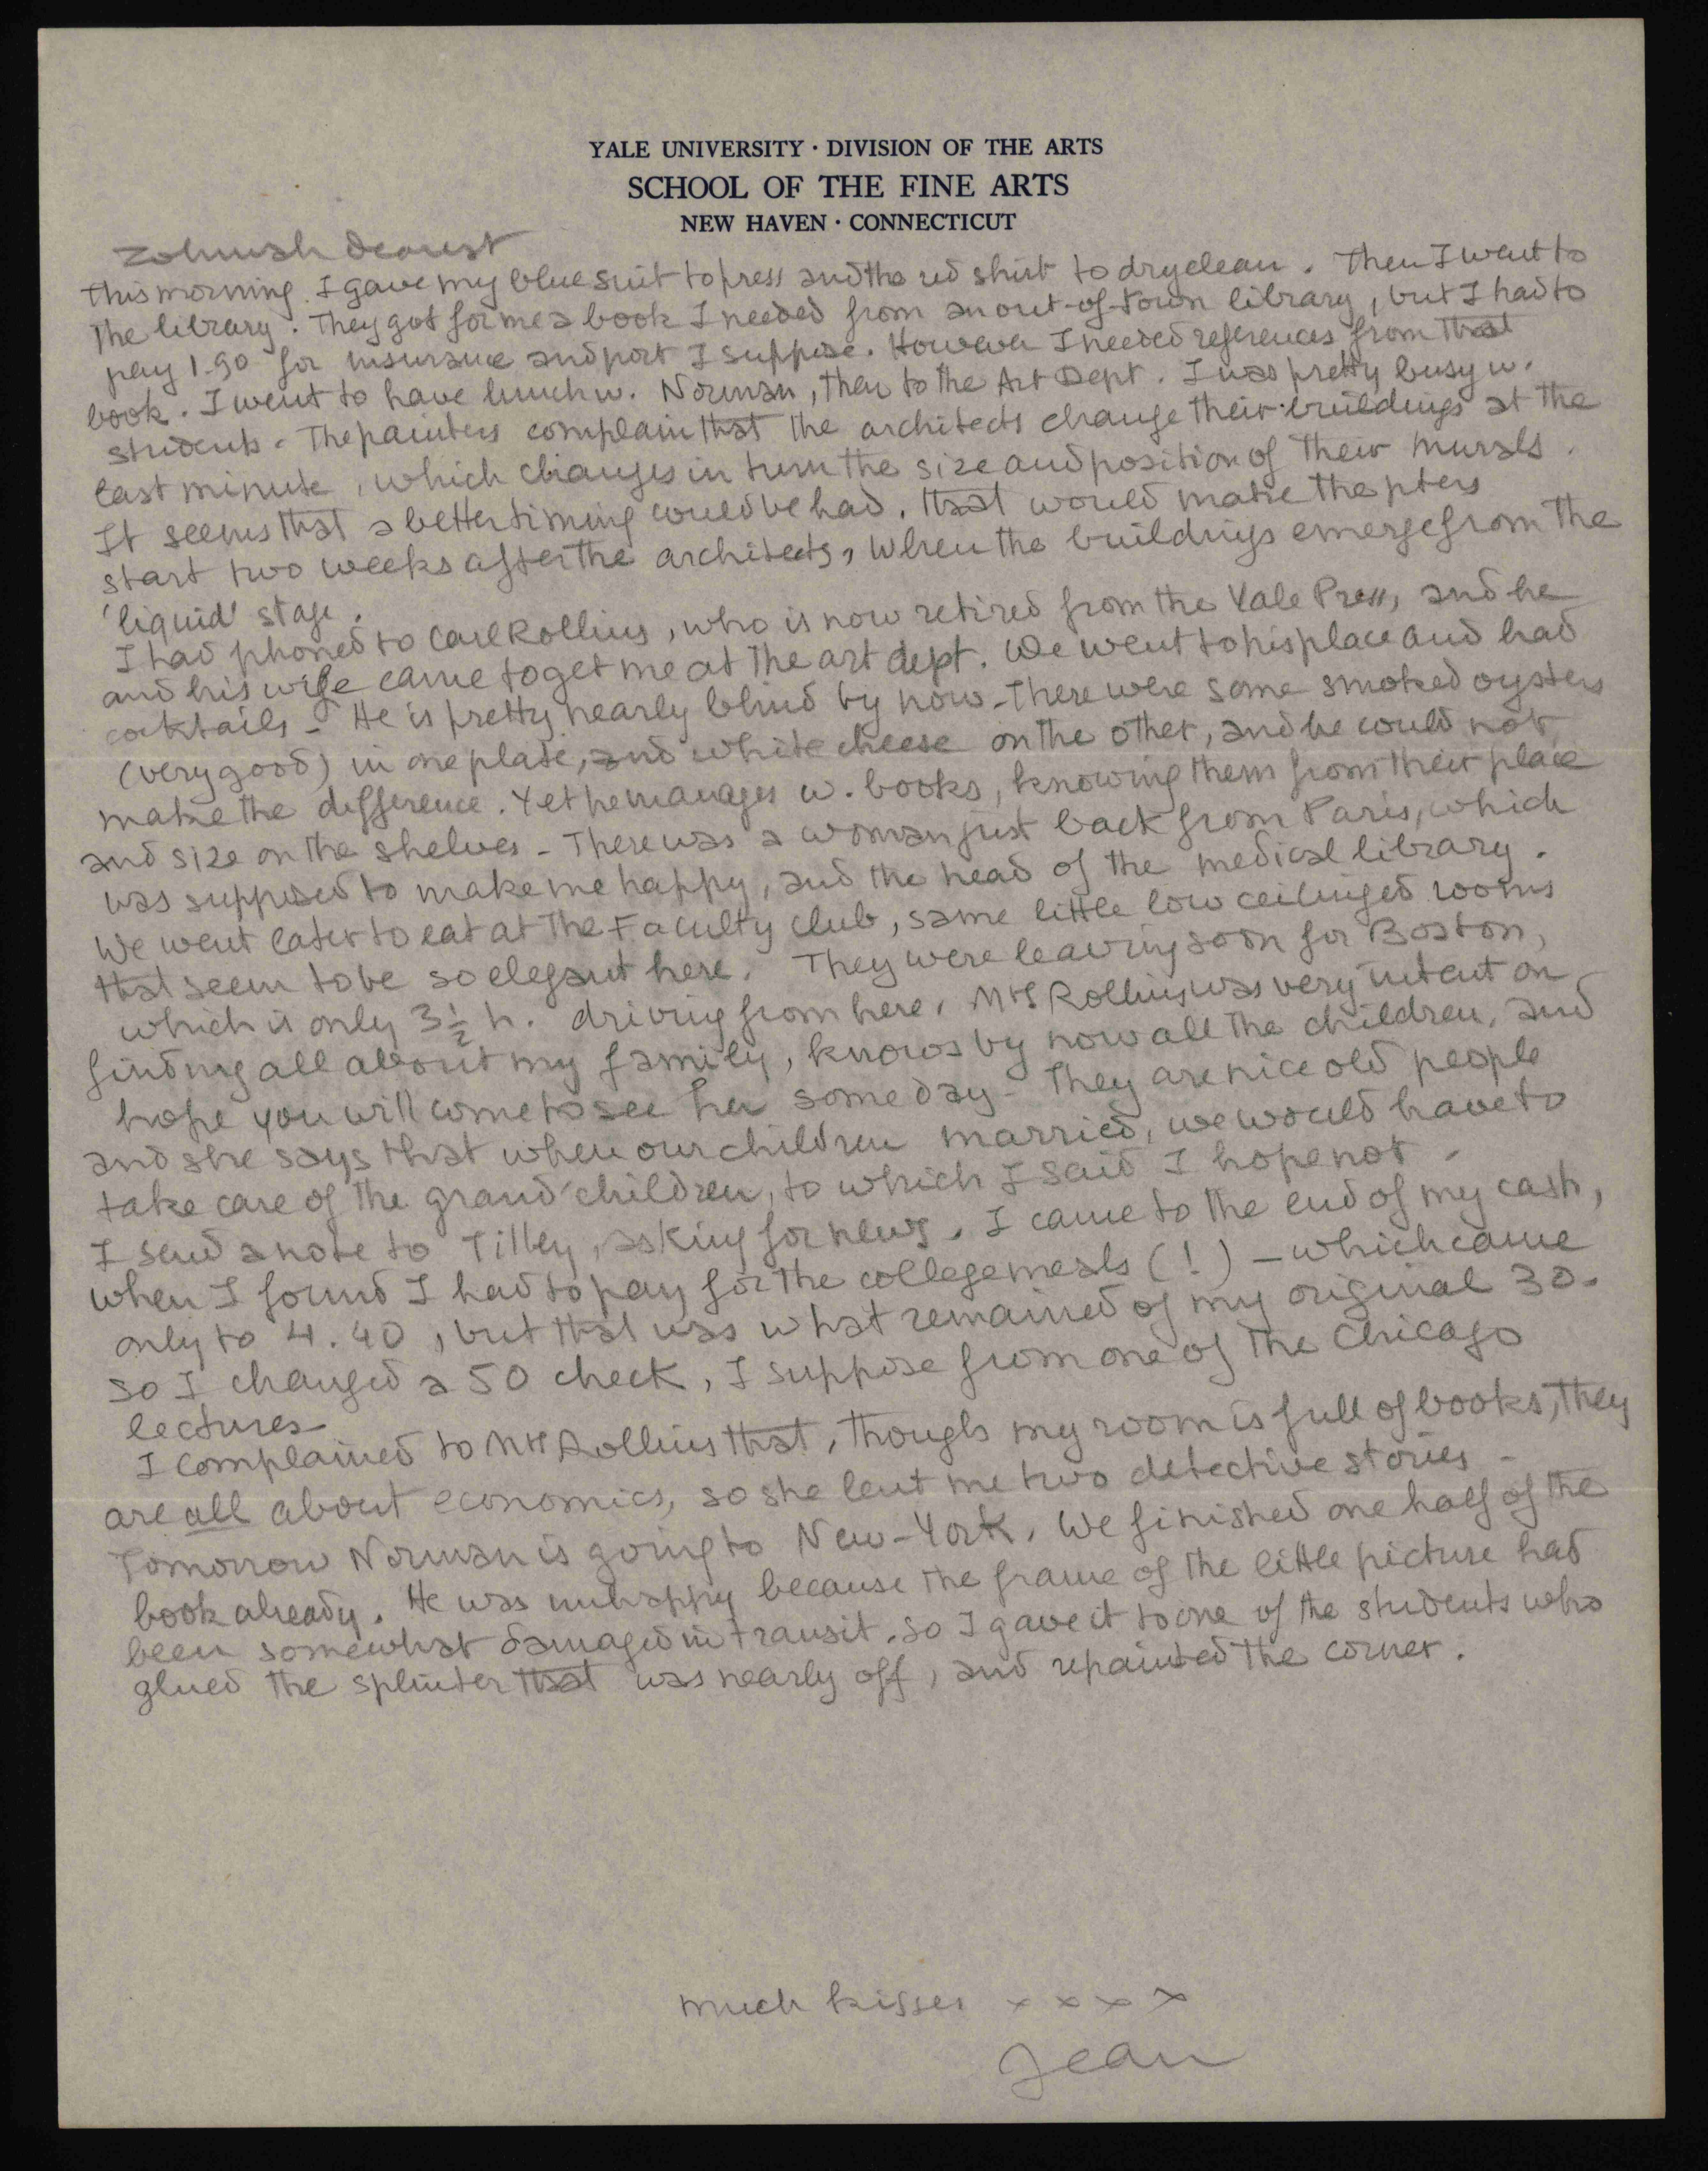 YALE UNIVERSITY · DIVISION OF THE ARTS
SCHOOL OF THE FINE ARTS
NEW HAVEN · CONNECTICUT
Zohmah dearest
This morning I gave my blue suit to press and the red shirt to dryclean. Then I went to
the library. They got for me a book I needed from an out-of-town library, but I had to
pay 1.90 for insurance and port I suppose. However I needed references from that
book. I went to have lunch w. Norman, then to the Art Dept. I was pretty busy w.
students. The painters complain that the architects change their buildings at the
last minute, which changes in turn the size and position of their murals.
It seems that a better timing could be had, that would make the pters
start two weeks after the architects, when the buildings emerge from the
'liquid' stage.
I had phoned to Carl Rollins, who is now retired from the Yale Press, and he
and his wife came to get me at the art dept. We went to his place and had
cocktails - He is pretty nearly blind by now - There were some smoked oysters
(very good) in one plate, and white cheese on the other, and he could not
make the difference. Yet he manages w. books, knowing them from their place
and size on the shelves - There was a woman just back from Paris, which
was supposed to make me happy, and the head of the medical library.
We went later to eat at the Faculty club, same little low ceilinged rooms
that seem to be so elegant here. They were leaving soon for Boston,
which is only 3½ h. driving from here. Mrs Rollins was very intent on
finding all about my family, knows by now all the children, and
hope you will come to see her some day - They are nice old people
and she says that when our children married, we would have to
take care of the grand'children, to which I said I hope not.
I send a note to Tilley, asking for news. I came to the end of my cash,
when I found I had to pay for the college meals (!) - which came
only to 4.40, but that was what remained of my original 30.
So I changed a 50 check, I suppose from one of the Chicago
lectures -
I complained to Mrs Rollins that, though my room is full of books, they
are all about economics, so she lent me two detective stories -
Tomorrow Norman is going to New-York. We finished one half of the
book already. He was unhappy because the frame of the little picture had
been somewhat damaged in transit. So I gave it to one of the students who
glued the splinter that was nearly off, and repainted the corner.
much kisses x x x x
Jean